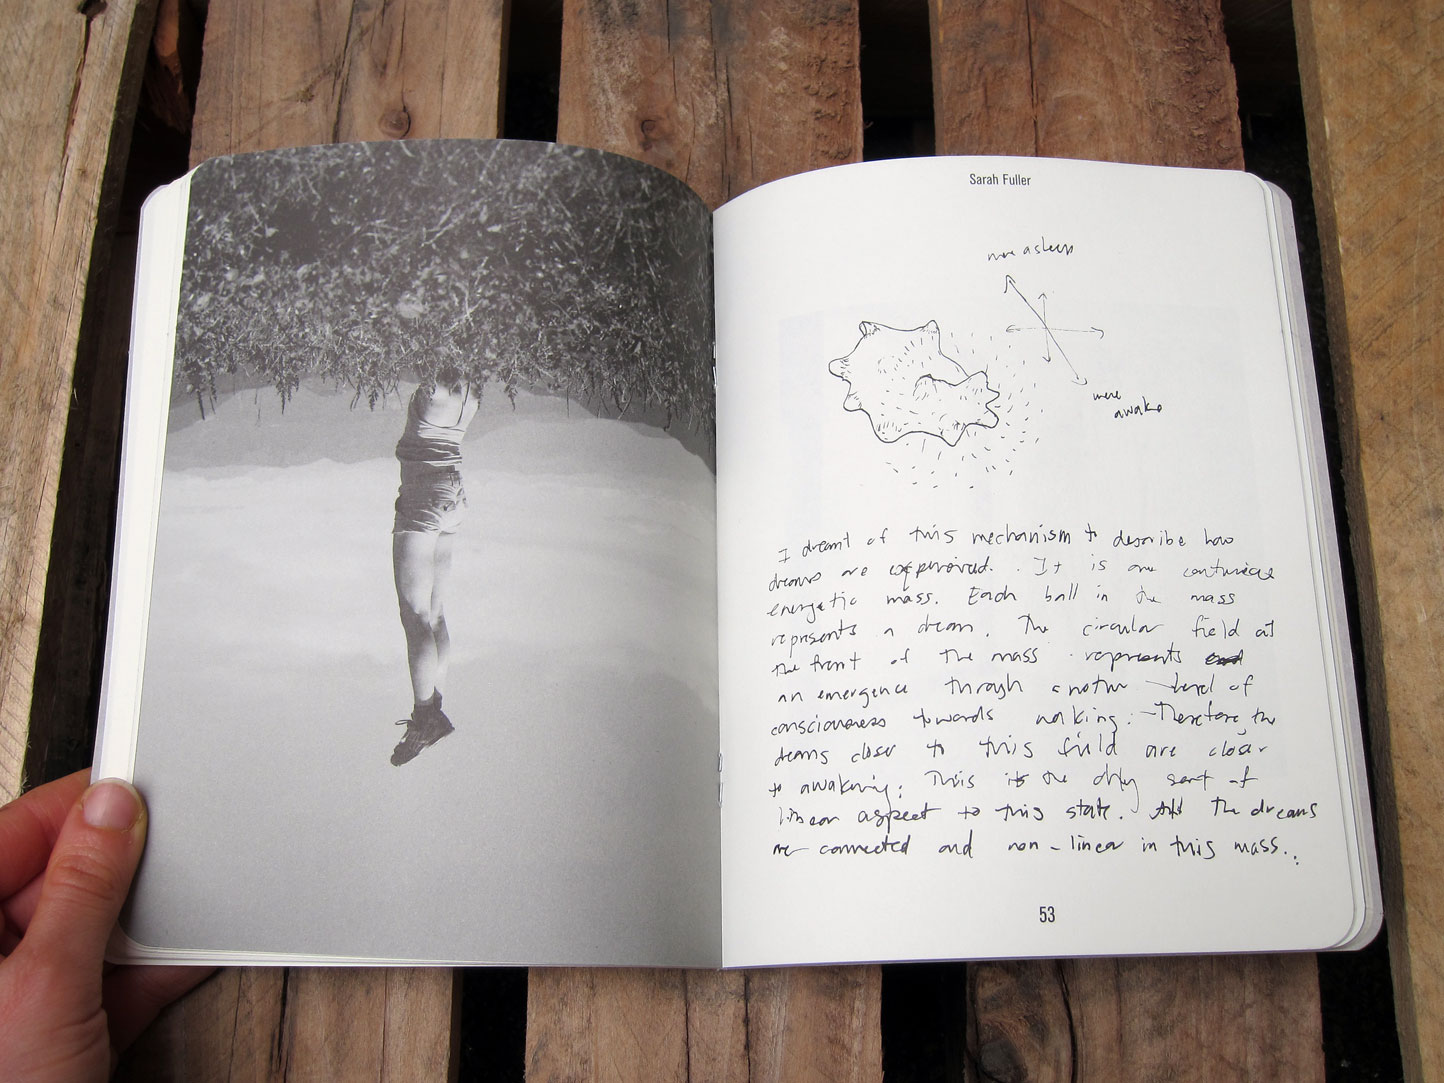 Sarah Fuller
more asleep
more
awake
I dreamt of this mechanism to describe how
dreams are experienced. It is one continuous
energetic mass. Each ball in the mass
represents a dream. The circular field at
the front of the mass represents
an emergence through another level of
consciousness towards walking. Therefore, the
dreams closer to this field are closer
to awakening. This is the only sort of
linear aspect to this state. All the dreams
are connected and non-linear in this mass.
53